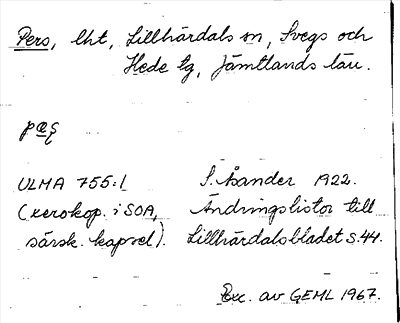 Pers, lht, Lillhärdals sn, Svegs och
Hede tg, Jämtlands län.
pæʂ
ULMA 755:1 S. Åsander 1922.
(xerokop. i SOA, Ändringslistor till
särsk. kapsel). Lillhärdalsbladet s. 44.
Exc. av GEML 1967.